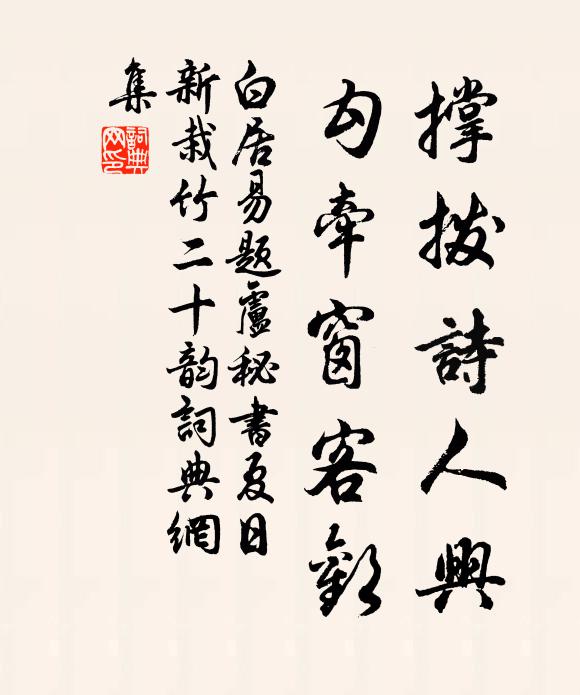 撑拨詩人興
勾牽窗客歡
白居易題盧秘書夏日
新栽竹二十韵詞典網
集
詞典网印